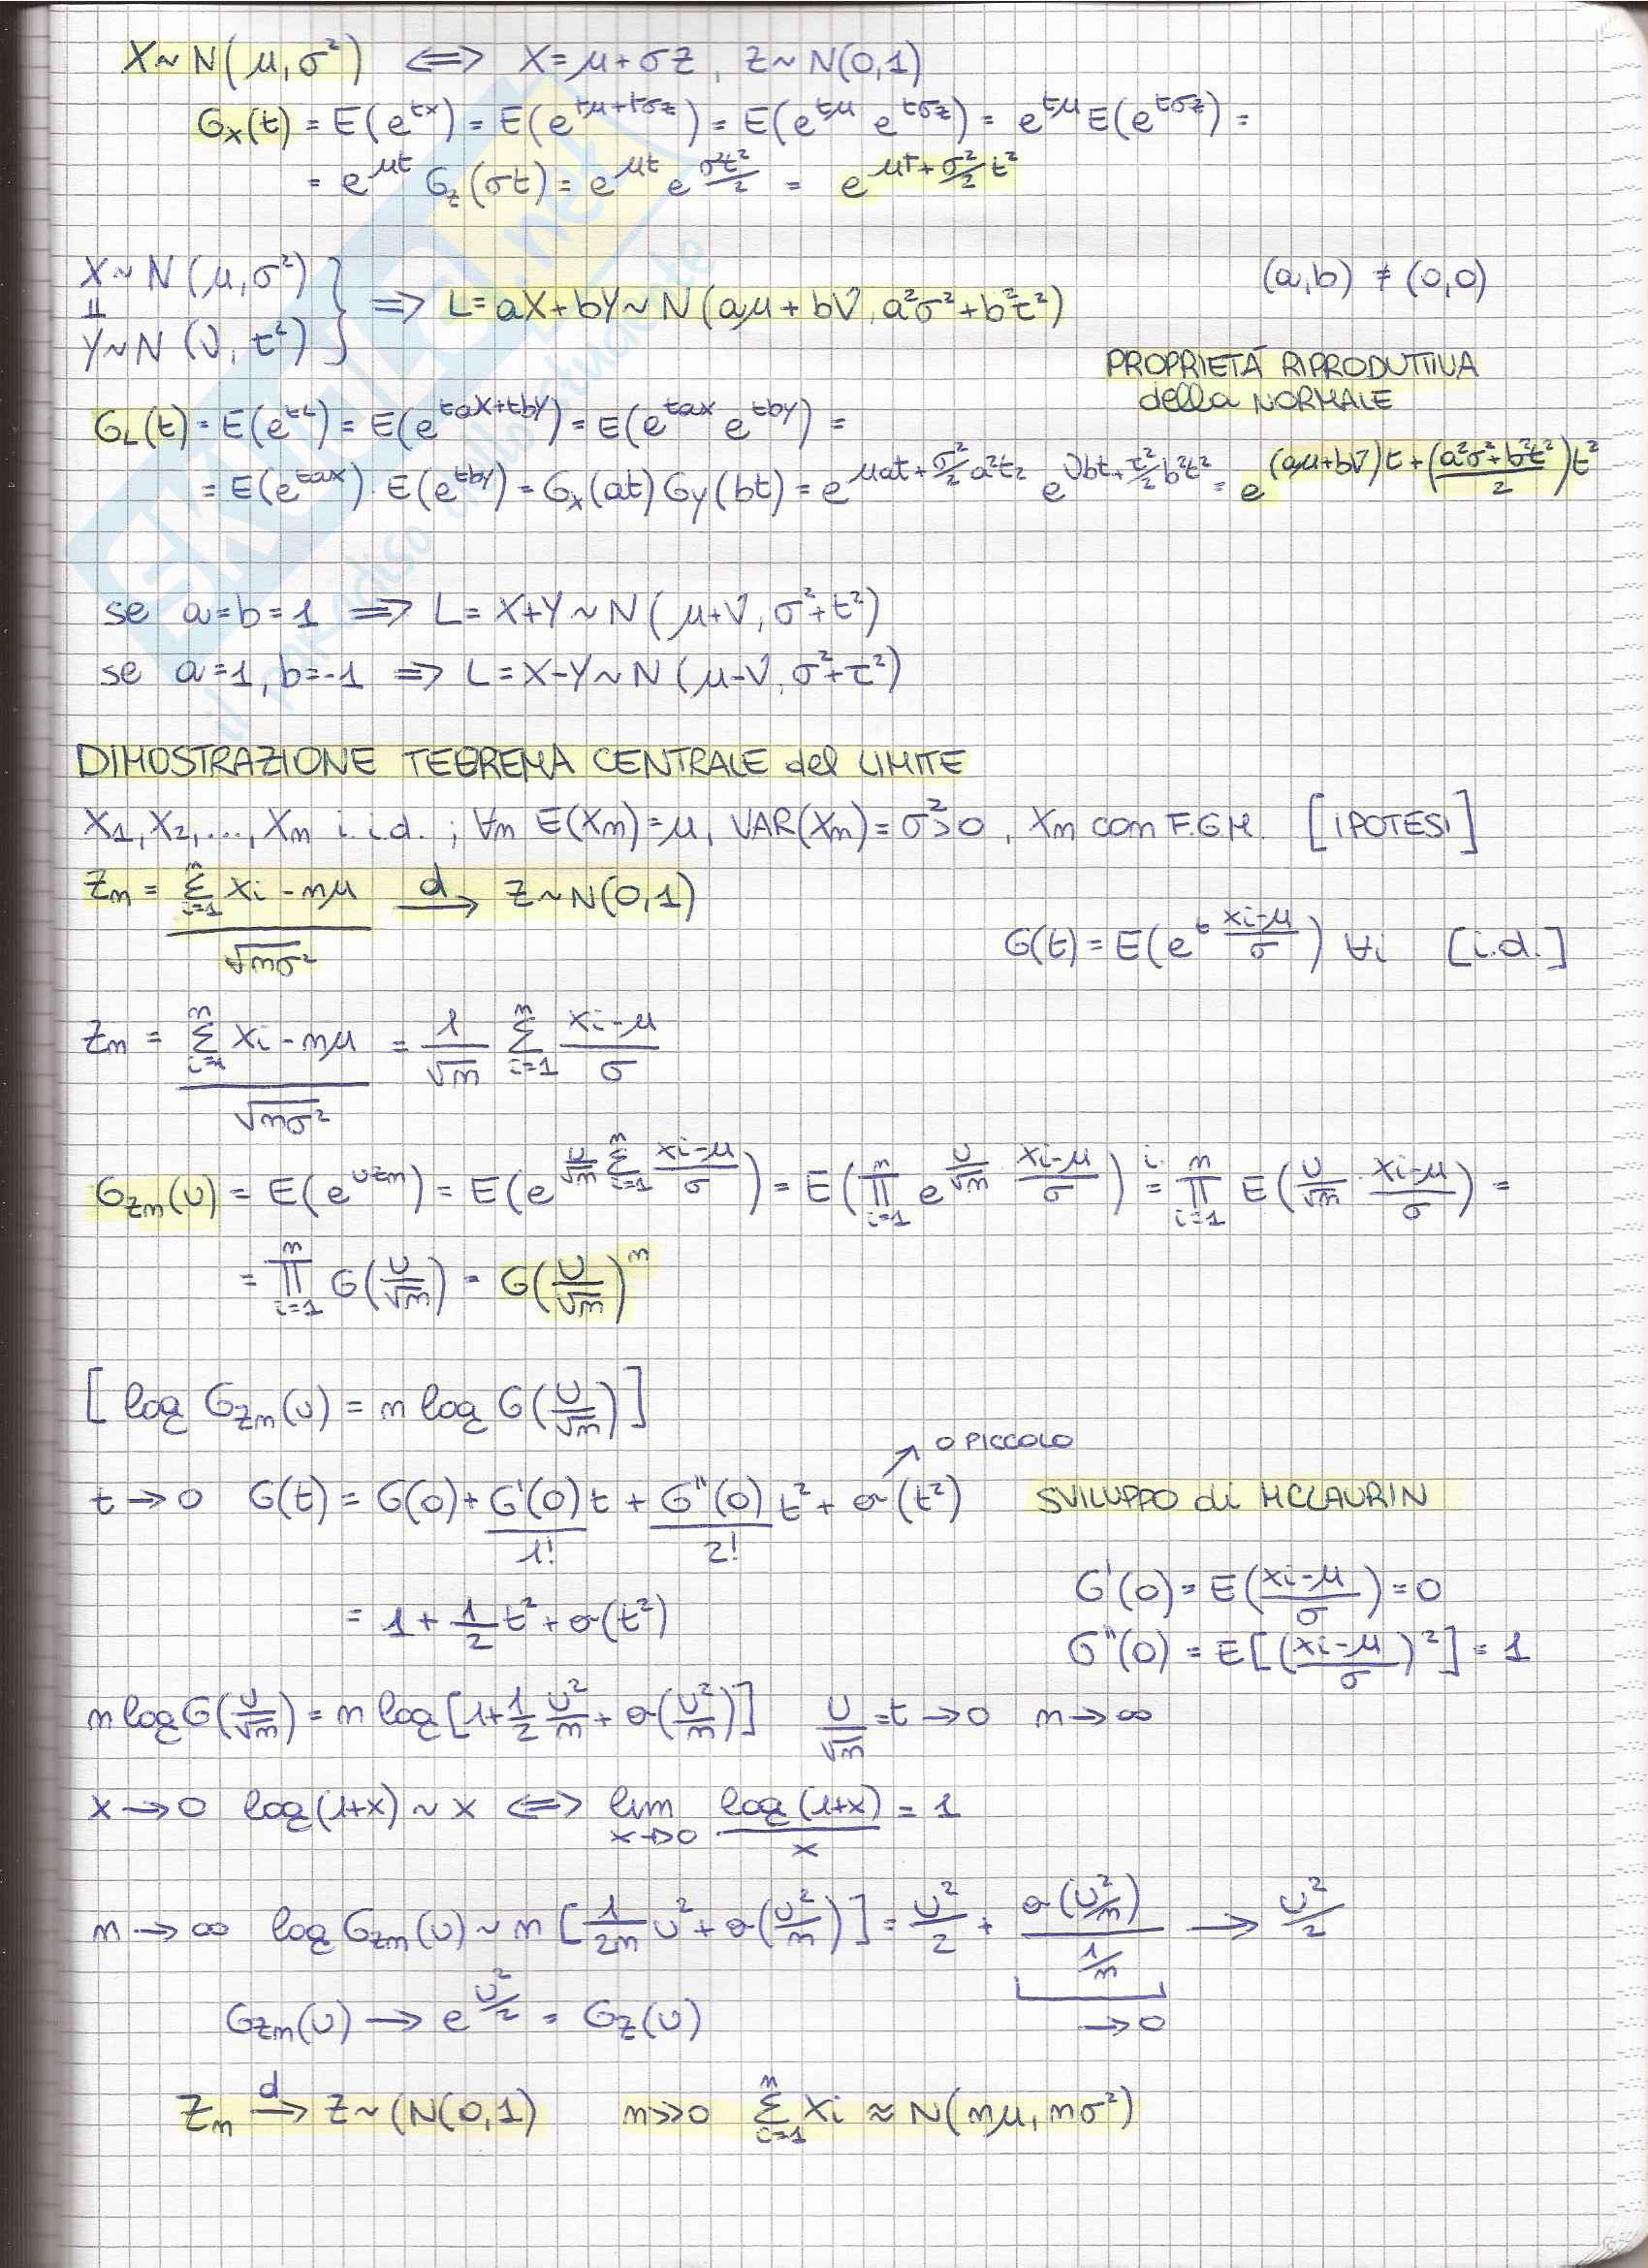 X ~ N(μ, σ²) ⟺ X = μ + σZ, Z ~ N(0,1)
G_X(t) = E(e^{tX}) = E(e^{tμ+tσZ}) = E(e^{tμ} e^{tσZ}) = e^{tμ} E(e^{tσZ}) =
= e^{μt} G_Z(σt) = e^{μt} e^{σ²t²/2} = e^{μt + σ²/2 t²}
X ~ N(μ, σ²)
⫫
Y ~ N(ν, τ²) } ⟹ L = aX + bY ~ N(aμ + bν, a²σ² + b²τ²) (a,b) ≠ (0,0)
PROPRIETÀ RIPRODUTTIVA
della NORMALE
G_L(t) = E(e^{tL}) = E(e^{taX+tbY}) = E(e^{taX} e^{tbY}) =
= E(e^{taX}) · E(e^{tbY}) = G_X(at) G_Y(bt) = e^{μat + σ²/2 a²t²} e^{νbt + τ²/2 b²t²} = e^{(aμ+bν)t + ((a²σ²+b²τ²)/2)t²}
se a=b=1 ⟹ L = X+Y ~ N(μ+ν, σ²+τ²)
se a=1, b=-1 ⟹ L = X-Y ~ N(μ-ν, σ²+τ²)
DIMOSTRAZIONE TEOREMA CENTRALE del LIMITE
X₁, X₂, ..., Xₙ i.i.d. ; ∀n E(Xₙ) = μ, VAR(Xₙ) = σ² > 0, Xₙ con F.G.M. [IPOTESI]
Zₙ = (Σ_{i=1}^{n} Xi - nμ) / √(nσ²) →d Z ~ N(0,1)
G(t) = E(e^{t (Xi-μ)/σ}) ∀i [i.d.]
Zₙ = (Σ_{i=1}^{n} Xi - nμ) / √(nσ²) = 1/√n Σ_{i=1}^{n} (Xi-μ)/σ
G_{Zn}(υ) = E(e^{υZn}) = E(e^{υ/√n Σ_{i=1}^{n} (Xi-μ)/σ}) = E(∏_{i=1}^{n} e^{υ/√n · (Xi-μ)/σ}) =^{i.} ∏_{i=1}^{n} E(υ/√n · (Xi-μ)/σ) =
= ∏_{i=1}^{n} G(υ/√n) = G(υ/√n)ⁿ
[log G_{Zn}(υ) = n log G(υ/√n)]
↗ O PICCOLO
t → 0 G(t) = G(0) + G'(0)/1! t + G''(0)/2! t² + o(t²) SVILUPPO di MCLAURIN
G'(0) = E((Xi-μ)/σ) = 0
= 1 + 1/2 t² + o(t²)
G''(0) = E[((Xi-μ)/σ)²] = 1
n log G(υ/√n) = n log[1 + 1/2 υ²/n + o(υ²/n)] υ/√n = t → 0 n → ∞
x → 0 log(1+x) ~ x ⟺ lim_{x→0} log(1+x)/x = 1
n → ∞ log G_{Zn}(υ) ~ n [1/2n υ² + o(υ²/n)] = υ²/2 + o(υ²/n)/(1/n) → υ²/2
G_{Zn}(υ) → e^{υ²/2} = G_Z(υ)
→ 0
Zₙ →d Z ~ (N(0,1) n>>0 Σ_{i=1}^{n} Xi ≈ N(nμ, nσ²)
SKUOLA.net
il paradiso dello studente